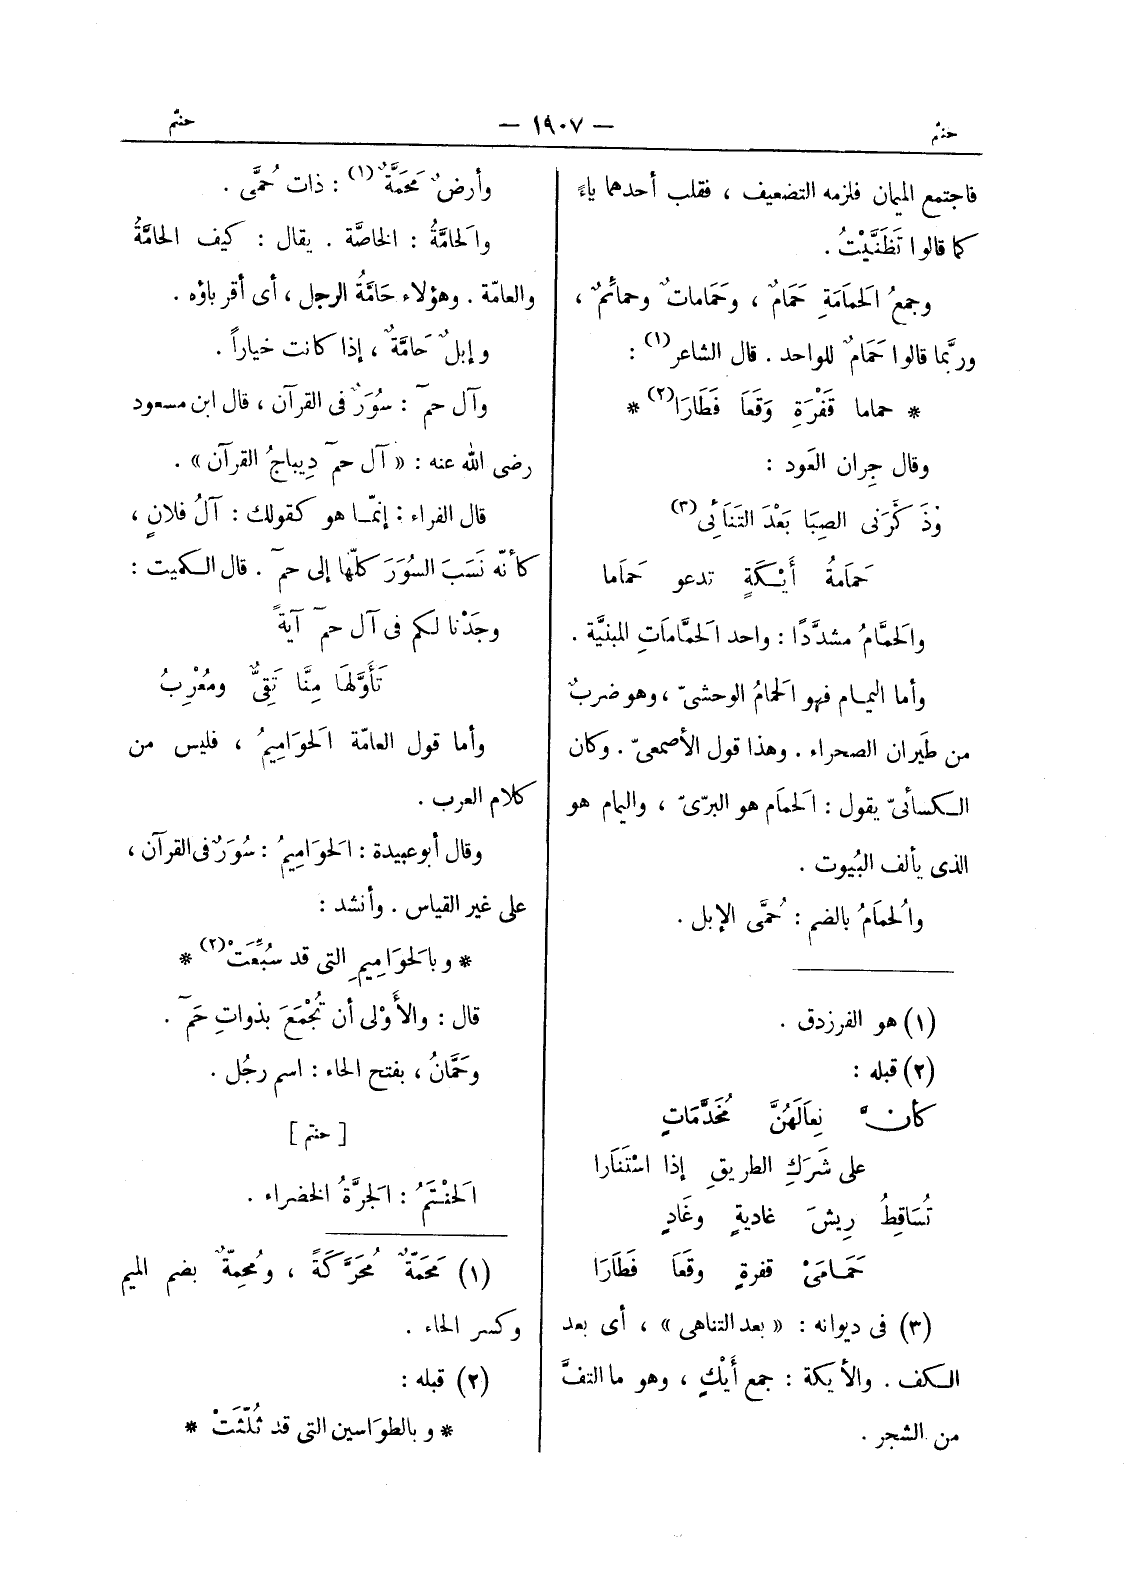 حنتم
— ١٩٠٧ —
حنتم
فاجتمع الميمان فلزمه التضعيف ، فقلب أحدهما ياءً
كما قالوا تَظَنَّيْتُ .
وجمعُ الحَمَامَةِ حَمَامٌ ، وحَمَاماتٌ وحمائمٌ ،
وربَّما قالوا حَمَامٌ للواحد . قال الشاعر (١) :
* حماما قَفْرَةٍ وَقَعَا فَطَارَا (٢) *
وقال جِران العَود :
وَذَكَّرَنى الصِبَا بَعْدَ التَنَائِى (٣)
حَمَامَةُ أَيْكَةٍ تدعو حَمَاما
والحَمَّامُ مشدَّدًا : واحد الحَمَّامَاتِ المبنيَّة .
وأما اليمام فهو الحَمامُ الوحشىّ ، وهو ضربٌ
من طَيران الصحراء . وهذا قول الأصمعىّ . وكان
الكسائىّ يقول : الحَمَام هو البرّىّ ، واليمام هو
الذى يألف البُيوت .
والحُمَامُ بالضم : حُمَّى الإبل .
(١) هو الفرزدق .
(٢) قبله :
كأنَّ نِعَالَهُنَّ مُخَدَّمَاتٍ
على شَرَكِ الطريقِ إذا اسْتَنَارا
تُسَاقِطُ رِيشَ غاديةٍ وغَادٍ
حَمَامَىْ قفرةٍ وقَعَا فَطَارَا
(٣) فى ديوانه : « بعد التناهى » ، أى بعد
الكف . والأيكة : جمع أَيْكٍ ، وهو ما التفَّ
من الشجر .
وأرضٌ مَحَمَّةٌ (١) : ذات حُمَّى .
والحَامَّةُ : الخاصَّة . يقال : كيف الحامَّةُ
والعامّة . وهؤلاء حَامَّةُ الرجل ، أى أقرباؤه .
وإبلٌ حَامَّةٌ ، إذا كانت خياراً .
وآل حمۤ : سُوَرٌ فى القرآن ، قال ابن مسعود
رضى الله عنه : « آل حمۤ دِيباجُ القرآن » .
قال الفراء : إنمّا هو كقولك : آلُ فلانٍ ،
كأنّه نَسَبَ السُوَرَ كلّها إلى حمۤ . قال الكميت :
وجَدْنا لكم فى آل حمۤ آيةً
تَأَوَّلَهَا مِنَّا تَقِىٌّ ومُعْرِبُ
وأما قول العامّة الحَوَامِيمُ ، فليس من
كلام العرب .
وقال أبو عبيدة : الحَوَامِيمُ : سُوَرٌ فى القرآن ،
على غير القياس . وأنشد :
* وبالحَوَامِيمِ التى قد سُبِّعَتْ (٢) *
قال : والأَوْلى أن تُجْمَعَ بذواتِ حَمۤ .
وحَمَّانُ ، بفتح الحاء : اسم رجُل .
[ حنتم ]
الحَنْتَمُ : الجَرَّةُ الخضراء .
(١) مَحَمَّةٌ مُحَرَّكَةً ، ومُحِمّةٌ بضم الميم
وكسر الحاء .
(٢) قبله :
* وبالطوَاسين التى قد ثُلِّثَتْ *